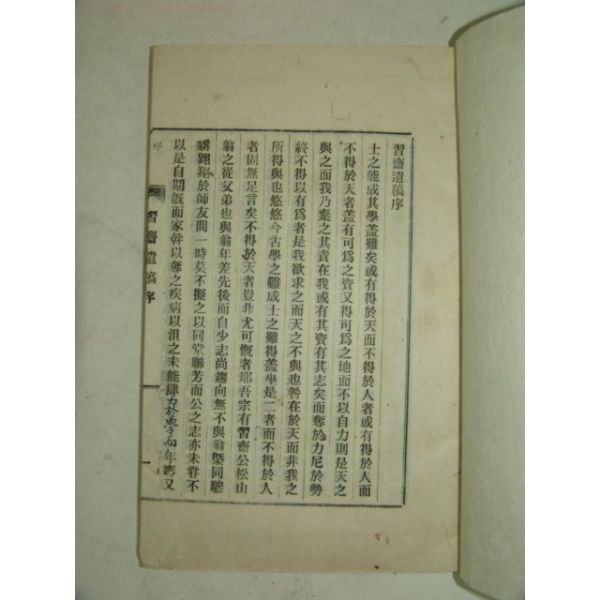 習齋遺稿序
士之能成其學蓋難矣或有得於天而不得於人者或有得於人而
不得於天者蓋有可爲之資又得可爲之地而不以自力則是天之
與之而我乃棄之其責在我或有其資有其志矣而奪於力尼於勢
終不得以有爲者是我欲求之而天之不與也咎在於天而非我之
所得與也悠悠今古學之難成士之難得蓋坐是二者而不得於人
者固無足言矣不得於天者豈非尤可慨者耶吾宗有習齋公松山
翁之從父弟也與翁年差先後而自少志尙趨向無不與翁槩同聯
翩翱於師友間一時莫不擬之以同堂聯芳而公之志亦未甞不
以是自期旣而家幹以奪之疾病以沮之未能肆力於學而年壽又
習齋遺稿序